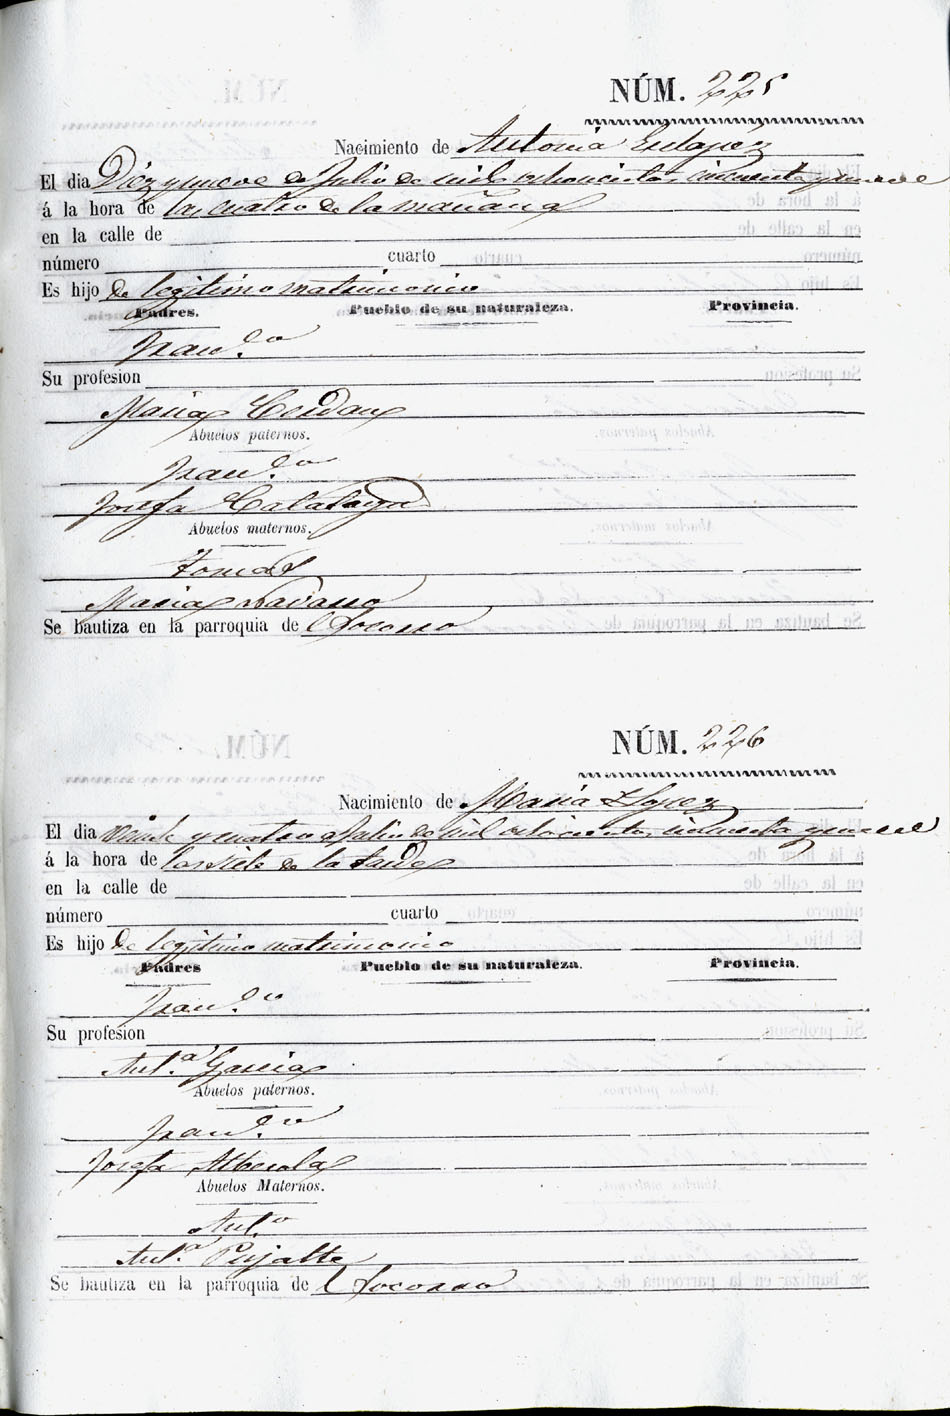 NÚM. 225
Nacimiento de Antonia
El dia Diez y nueve de Julio de mil ochocientos cincuenta y nueve
á la hora de las cuatro de la mañana
en la calle de
número cuarto
Es hijo de legitimo matrimonio
Padres. Pueblo de su naturaleza. Provincia.
Fran.co
Su profesion
Maria Cerdan
Abuelos paternos.
Fran.co
Josefa Calatayud
Abuelos maternos.
Tomas
Maria Navarro
Se bautiza en la parroquia de l Socorro
NÚM. 226
Nacimiento de Maria Lopez
El dia Veinte y cuatro de Julio de mil ochocientos cincuenta y nueve
á lá hora de las siete de la tarde
en la calle de
número cuarto
Es hijo de legitimo matrimonio
Padres Pueblo de su naturaleza. Provincia.
Fran.co
Su profesion
Ant.a Garcia
Abuelos paternos.
Fran.co
Josefa Alberola
Abuelos Maternos.
Ant.o
Ant.a Pujalte
Se bautiza en la parroquia de l Socorro